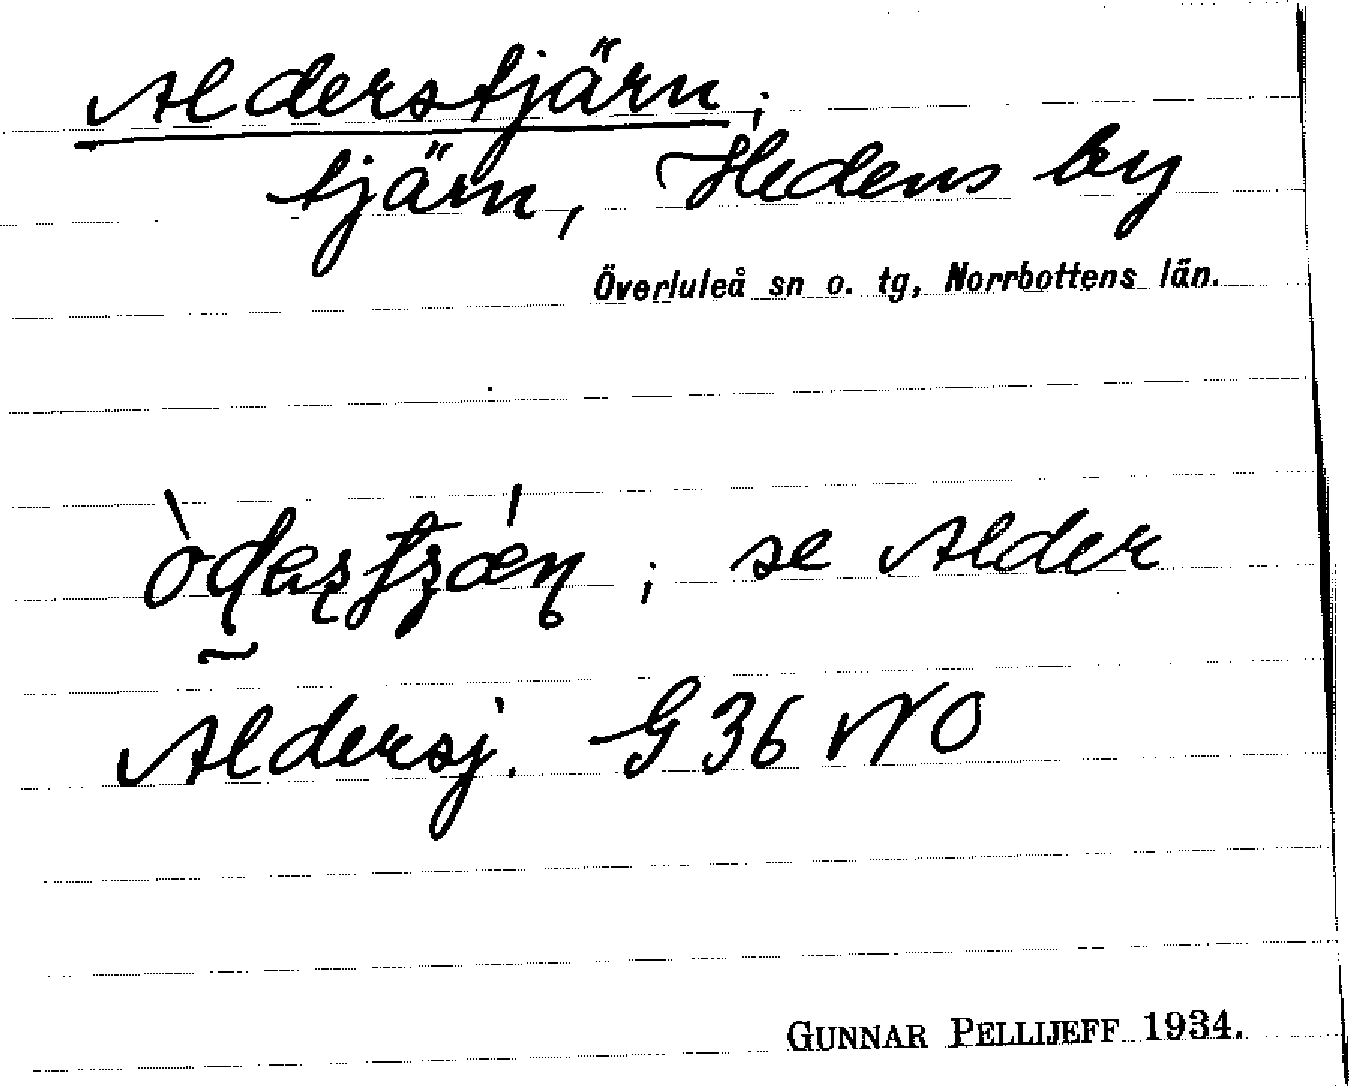 Alderstjärn;
tjärn, Hedens by
Överluleå sn o. tg, Norrbottens län.
; se Alder
Aldersj. G 36 NO
GUNNAR PELLIJEFF 1934.